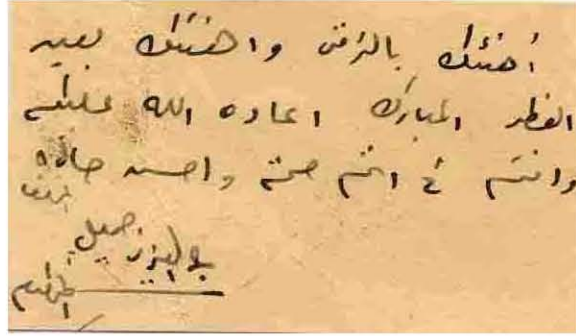 أهنئك بالترقي واهنئك بعيد
الفطر المبارك اعاده الله عليكم
وانتم في اتم صحة واحسن حال
جميل